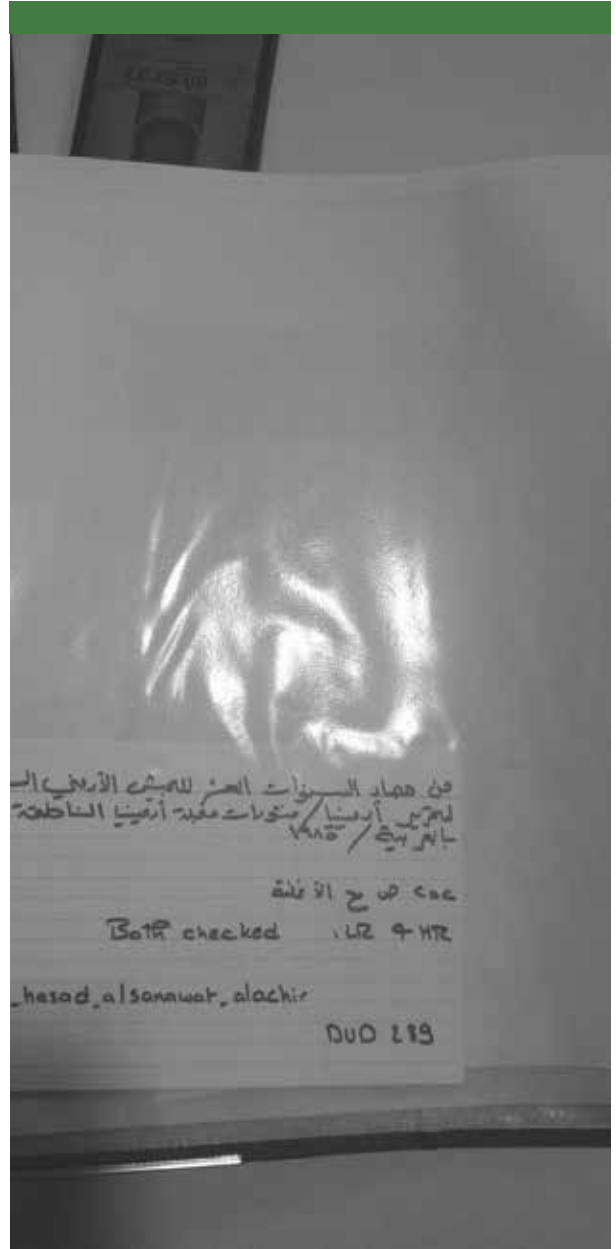 من حصاد السنوات العشر للجيش الأرمني
لتحرير أرمينيا / منشورات مجلة أرمينيا الناطقة
بالعربية / ١٩٨٥
ص مع الأغلفة
Both checked LR & HR
_hasad_alsanawat_alachir
DVD 289